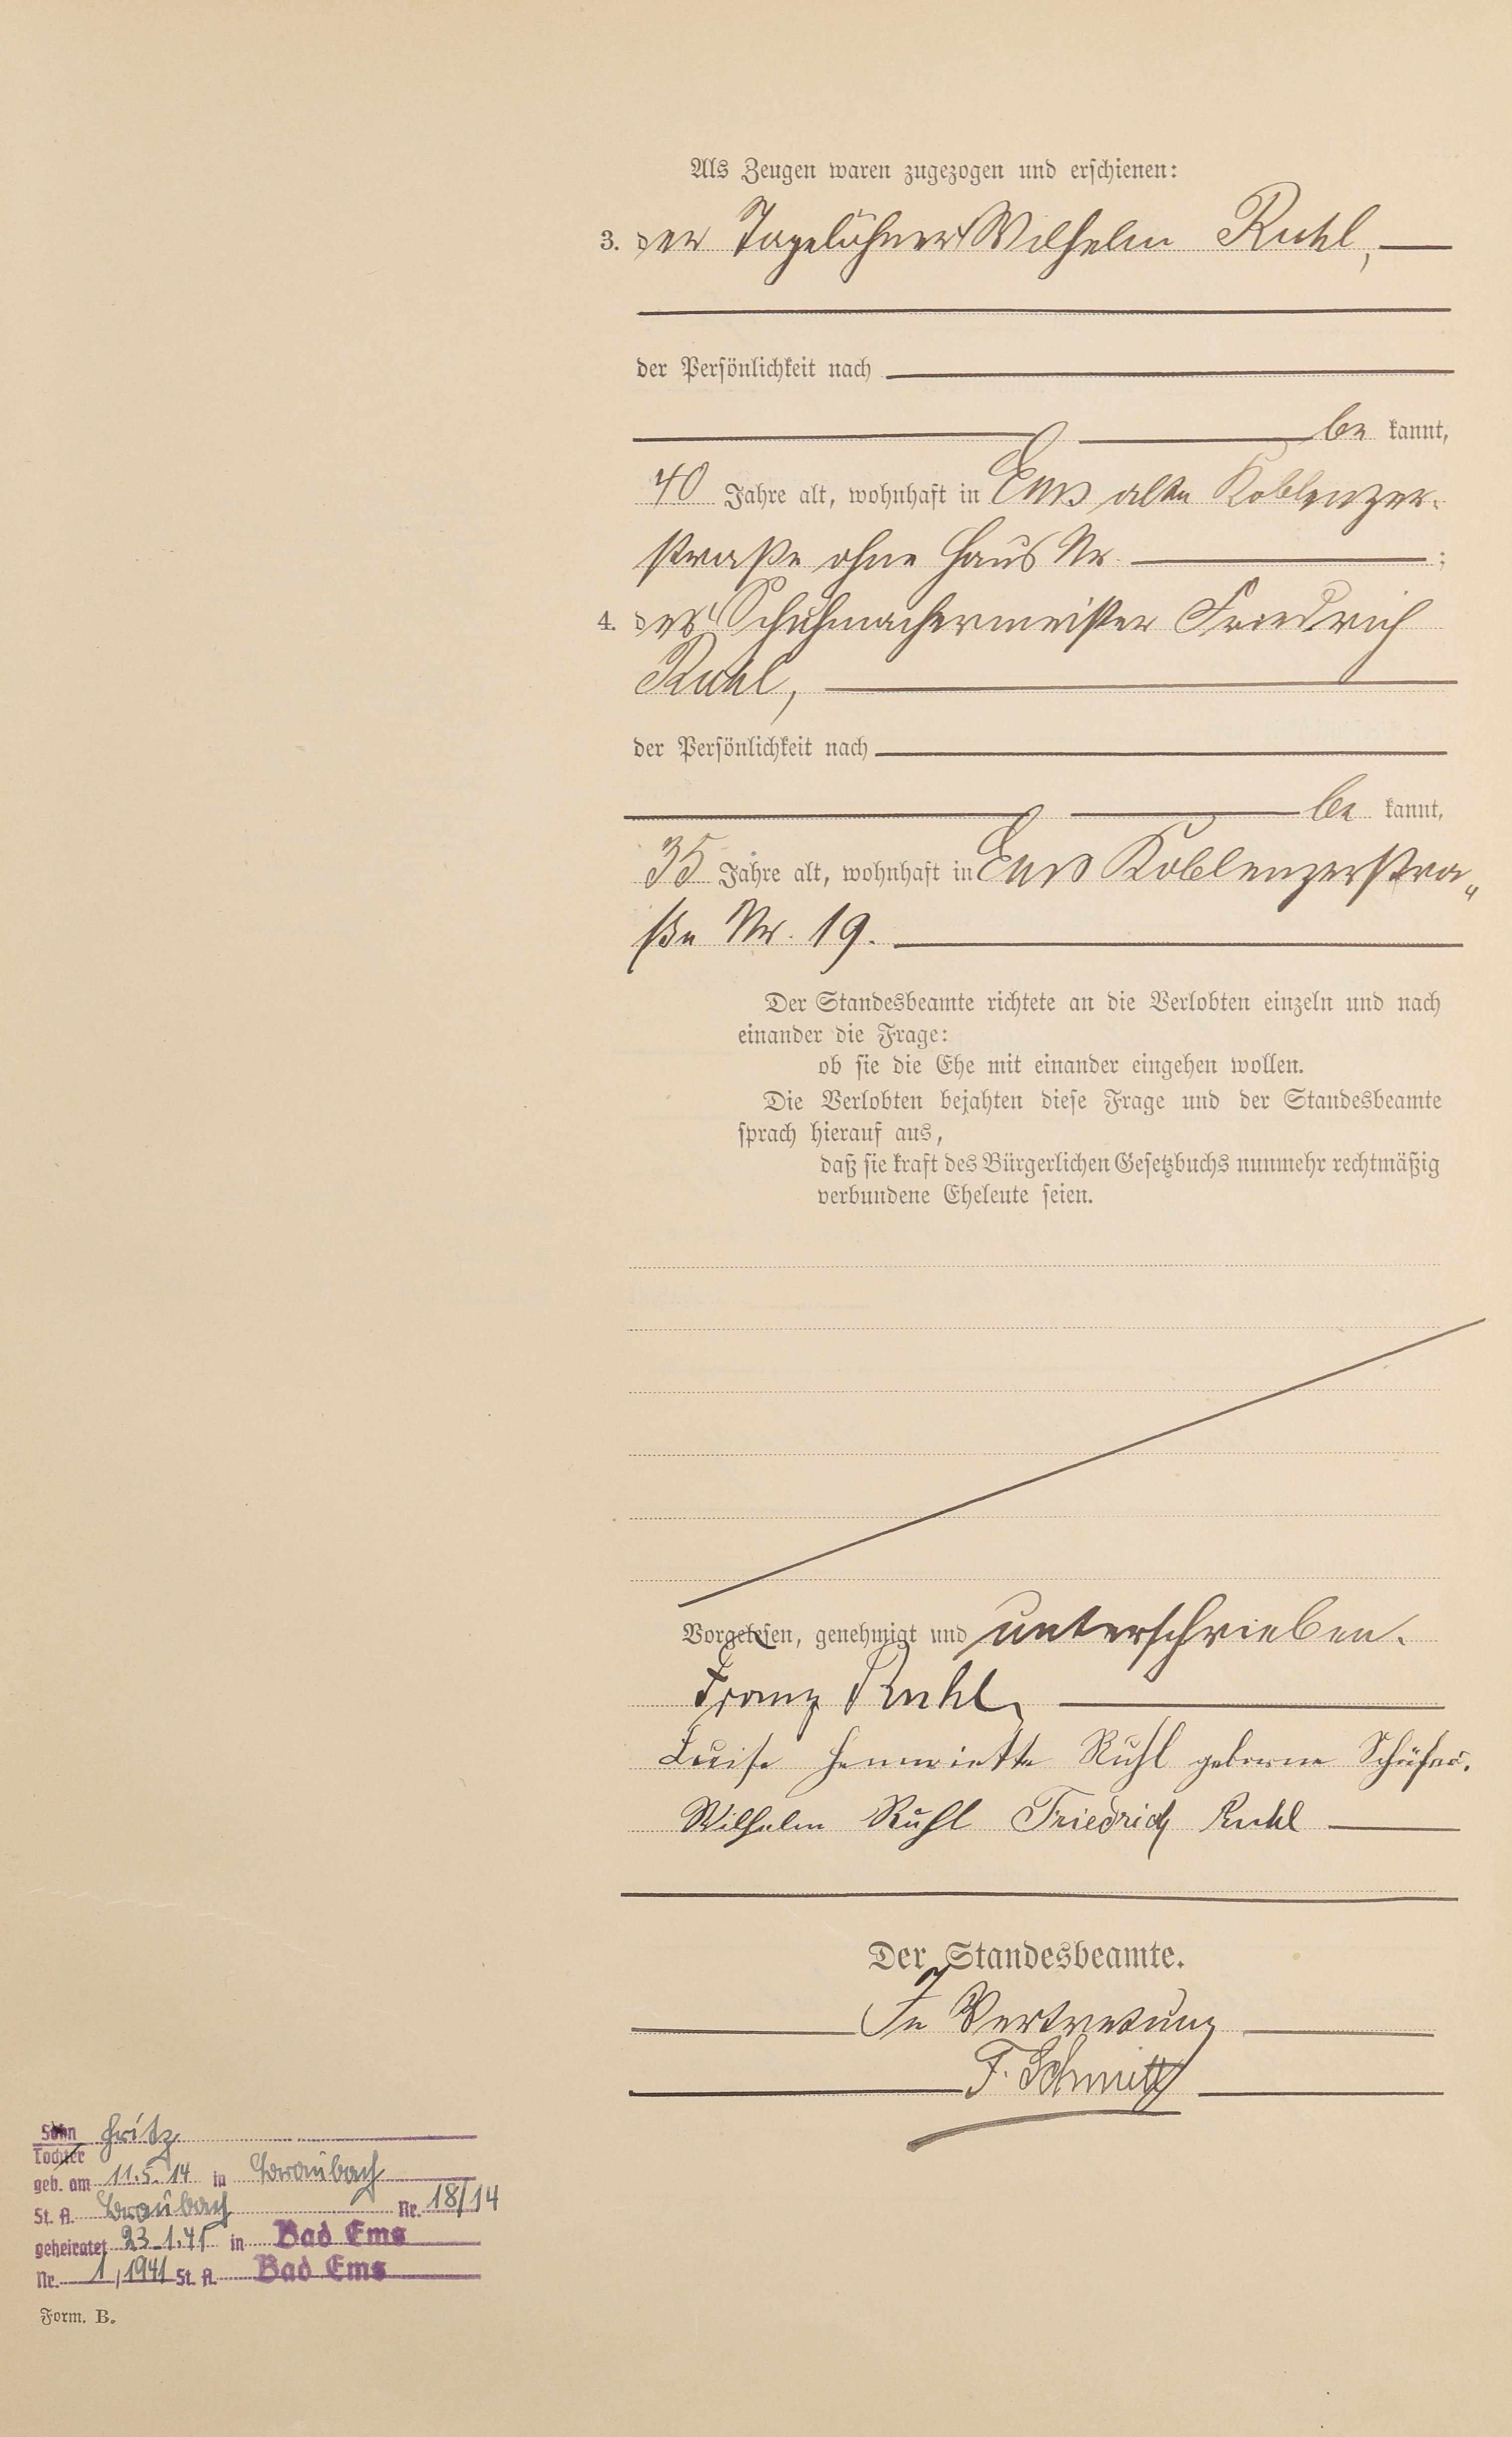 Als Zeugen waren zugezogen und erschienen:
3. der Tagelöhner Wilhelm Ruhl,
der Persönlichkeit nach
be kannt,
40 Jahre alt, wohnhaft in Ems alte Koblenzer-
straße ohne Haus Nr. ;
4. der Schuhmachermeister Friedrich
Ruhl,
der Persönlichkeit nach
be kannt,
35 Jahre alt, wohnhaft in Ems Koblenzerstra„
ße Nr. 19.
Der Standesbeamte richtete an die Verlobten einzeln und nach
einander die Frage:
ob sie die Ehe mit einander eingehen wollen.
Die Verlobten bejahten diese Frage und der Standesbeamte
sprach hierauf aus,
daß sie kraft des Bürgerlichen Gesetzbuchs nunmehr rechtmäßig
verbundene Eheleute seien.
Vorgelesen, genehmigt und unterschrieben.
Franz Ruhl
Luise Hennriette Ruhl geborene Schäfer.
Wilhelm Ruhl Friedrich Ruhl
Der Standesbeamte.
In Vertretung
F. Schmitt
Sohn Fritz
Tochter
geb. am 11.5.14 in Braubach
St. A. Braubach Nr. 18/14
geheiratet 23.1.41 in Bad Ems
Nr. 1/1941 St. A. Bad Ems
Form. B.